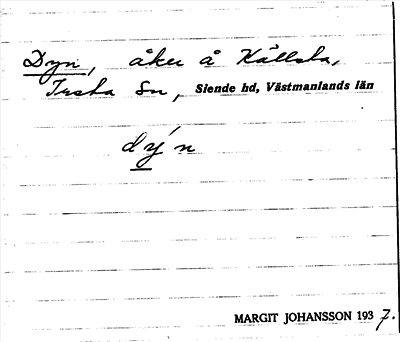 Dyn, åker å Källsta,
Irsta Sn, Siende hd, Västmanlands län
dýn
MARGIT JOHANSSON 1937.